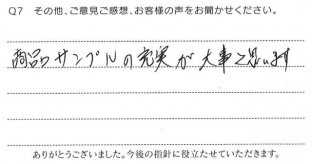 Q7 その他、ご意見ご感想、お客様の声をお聞かせください。
商品サンプルの充実が大事と思います
ありがとうございました。今後の指針に役立たせていただきます。